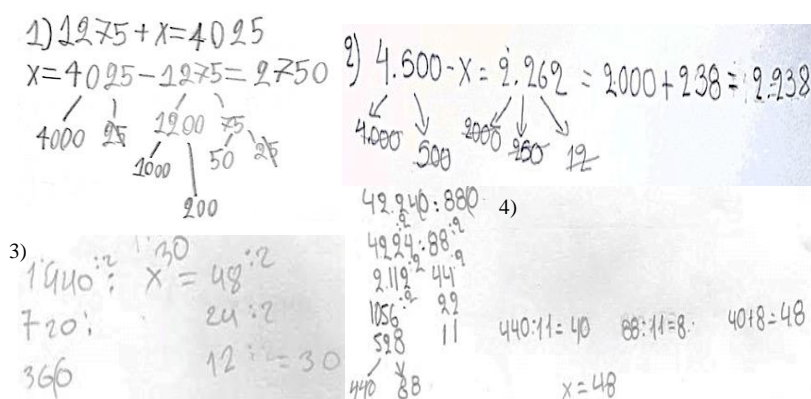 1) 1275 + x = 4025
x = 4025 - 1275 = 2750
4000 25 1200 75
1000 50 25
200
2) 4.500 - x = 2.262 = 2000 + 238 = 2.238
4.000 500 2000 250 12
3)
1:30
1'440:2 : x = 48:2
720: 24:2
360 12 : = 30
4)
42.240 : 880
4224:2 : 88:2
2.112:2 44:2
1056:2 22
528 11
440 88
440:11=40 88:11=8. 40+8=48
x=48